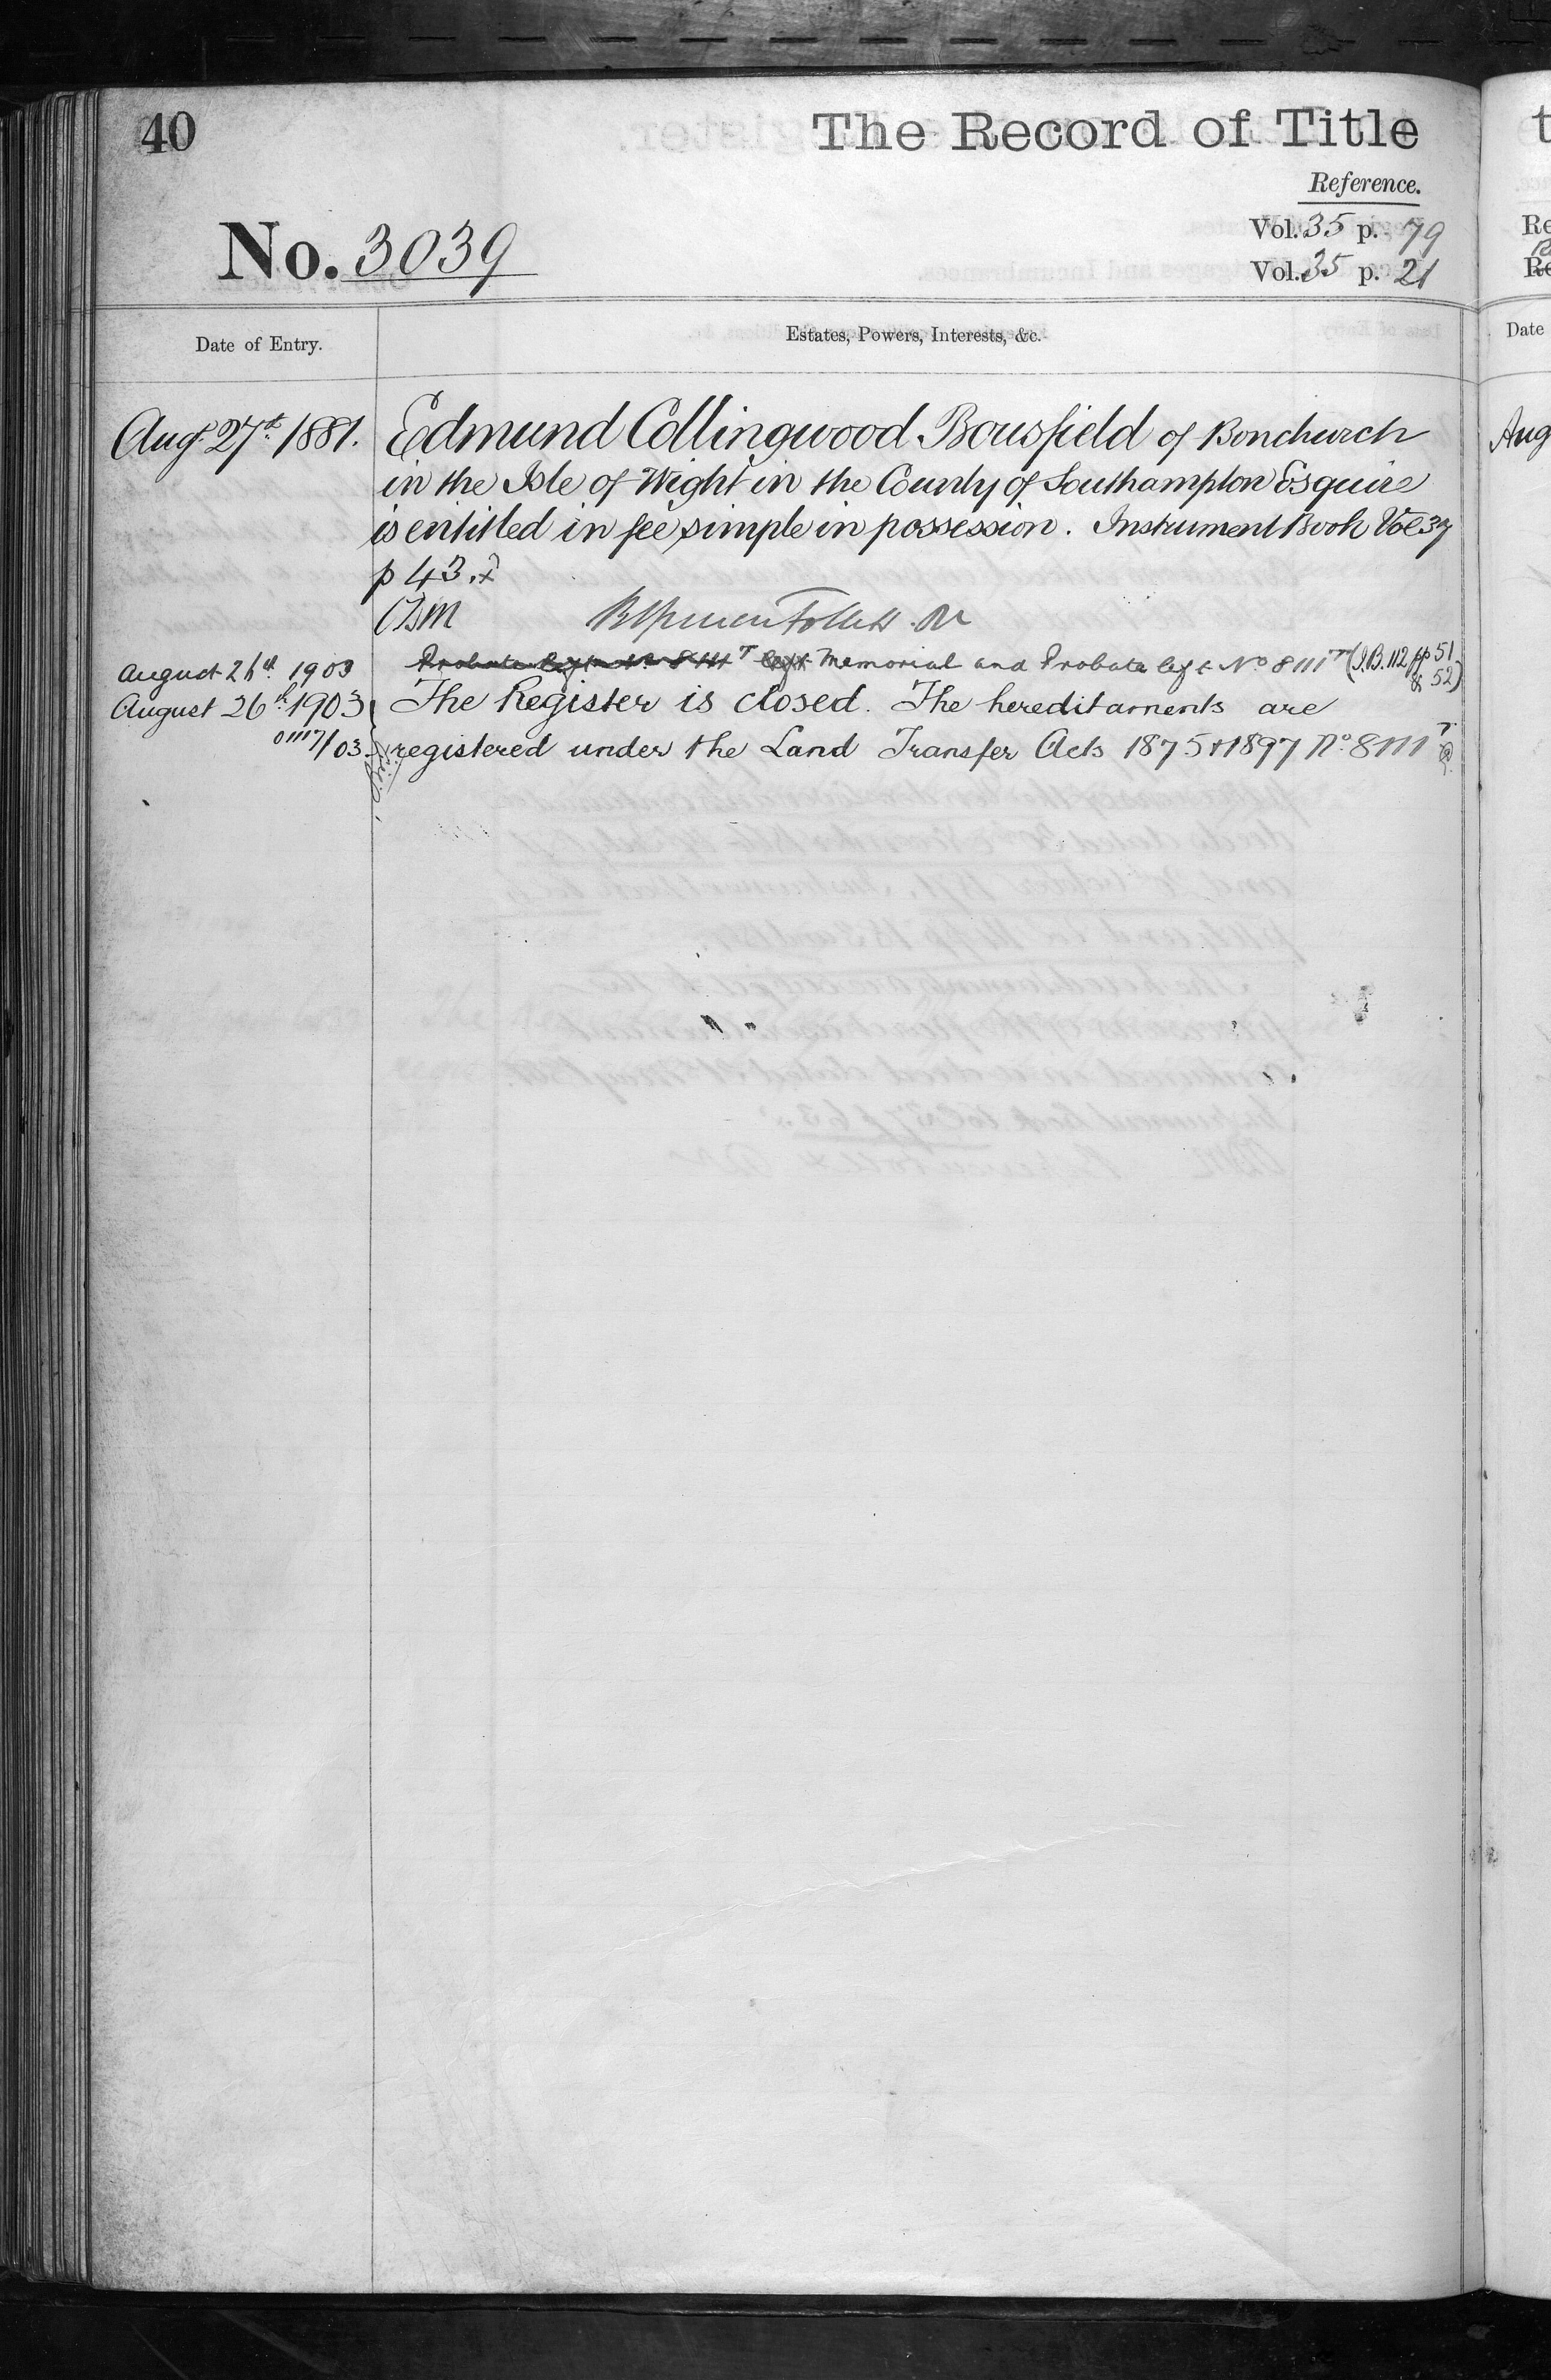 40
The Record of Title
Reference.
Vol. 35 p. 79
No. 3039
Vol. 35 p. 21
Date of Entry.
Estates, Powers, Interests, &c.
Aug. 27th 1881.
Edmund Collingwood Bousfield of Bonchurch
in the Isle of Wight in the County of Southampton Esquire
is entitled in fee simple in possession. Instrument Book Vol 37
p 43.
Follett
August 26th 1903
Probate left Memorial and Probate left No 8111T (I.B. 112 pp 51
& 52)
August 26th 1903
The Register is closed. The hereditaments are
/03
registered under the Land Transfer Acts 1875 & 1897 No 8111T
t
Re
Re
Date
Aug